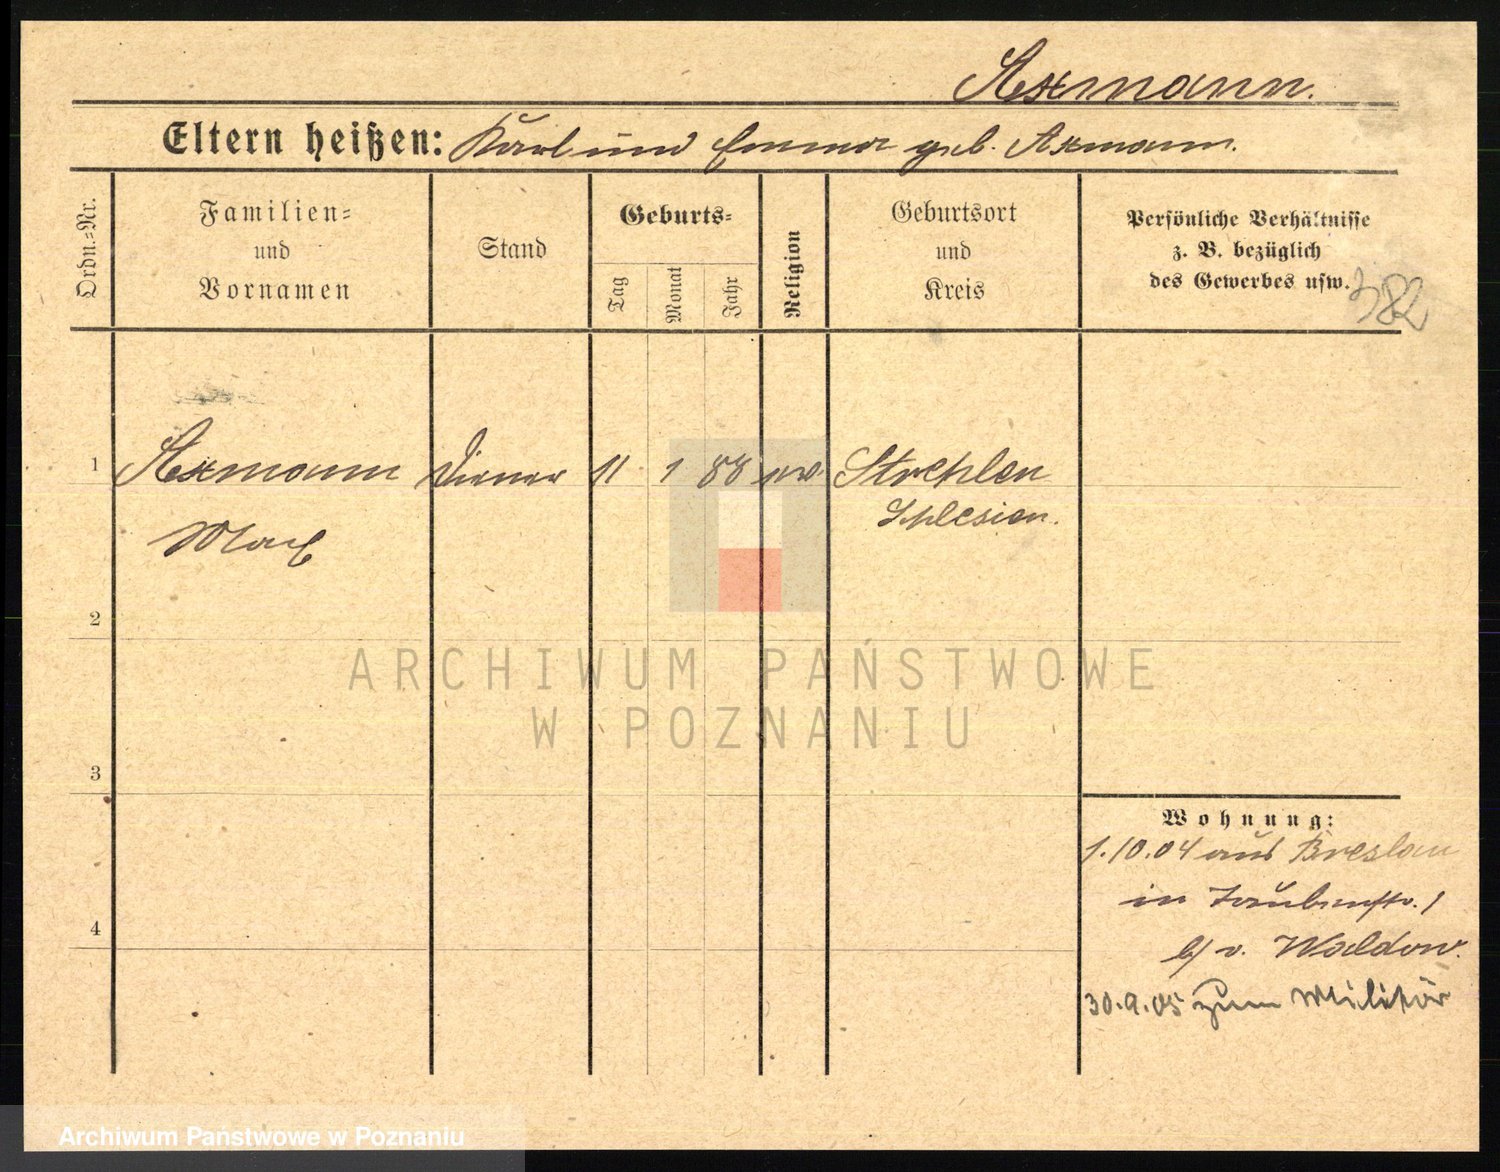 Axmann.
Eltern heißen: Karl und Emma geb. Axmann.
Ordn.=Nr.
Familien=
und
Vornamen
Stand
Geburts=
Tag
Monat
Jahr
Religion
Geburtsort
und
Kreis
Persönliche Verhältnisse
z. B. bezüglich
des Gewerbes usw.
382
1 Axmann Diener 11 1 88 ev. Strehlen
Schlesien.
Max
2
ARCHIWUM PAŃSTWOWE
W POZNANIU
3
Wohnung:
1.10.04 aus Breslau
in Taubenstr. 1
b/ v. Waldow.
4
30.9.05 zum Militär
Archiwum Państwowe w Poznaniu